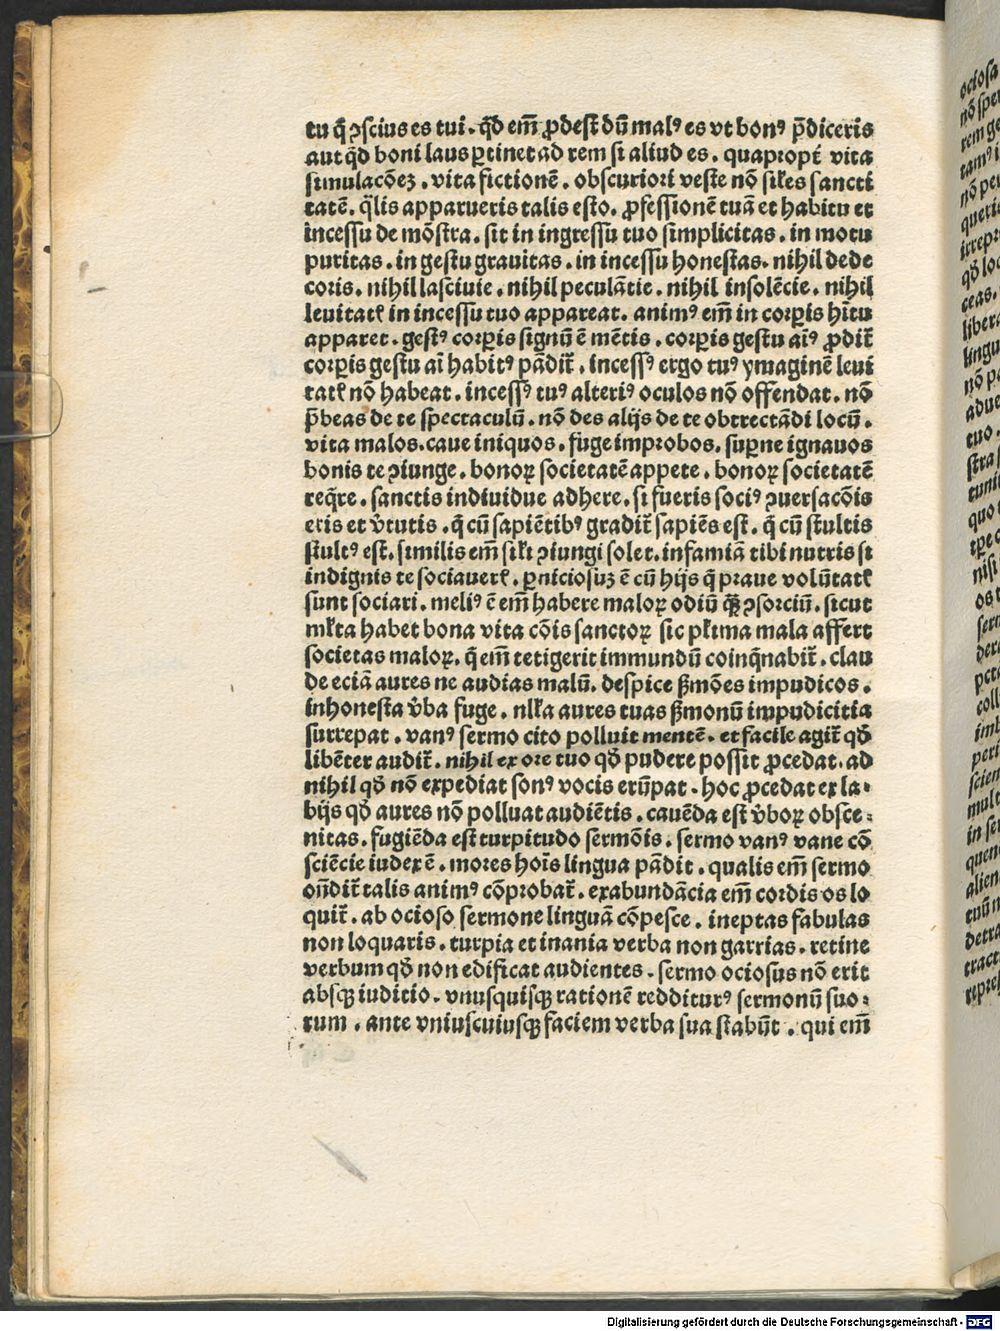 tu q̄ ꝯscius es tui . qd̄ em̄ ꝓdest dū malꝰ es vt bonꝰ p̄diceris
aut qd̄ boni laus ꝑtinet ad rem si aliud es . quapropt̄ vita
simulacōeꝫ . vita fictionē . obscuriori veste nō sił̄es sancti
tatē . q̄lis apparueris talis esto . ꝓfessionē tuā et habitu et
incessu de mōstra . sit in ingressu tuo simplicitas . in motu
puritas . in gestu grauitas . in incessu honestas . nihil dede
coris . nihil lasciuie . nihil peculātie . nihil insolēcie . nihil
leuitatꝭ in incessu tuo appareat . animꝰ em̄ in corꝑis hītu
apparet . gestꝰ corꝑis signū ē mētis . corꝑis gestu aīꝰ ꝓdit᷑
corꝑis gestu aī habitꝰ pādit᷑ . incessꝰ ergo tuꝰ ymaginē leui
tatꝭ nō habeat . incessꝰ tuꝰ alteriꝰ oculos nō offendat . nō
p̄beas de te spectaculū . nō des alijs de te obtrectādi locū .
vita malos . caue iniquos . fuge improbos . suꝑne ignauos
bonis te ꝯiunge . bonoꝝ societatē appete . bonoꝝ societatē
req̄re . sanctis indiuidue adhere . si fueris sociꝰ ꝯuersacōis
eris et v̄tutis . q̄ cū sapiētibꝰ gradit᷑ sapiēs est . q̄ cū stultis
stultꝰ est . similis em̄ siłi ꝯiungi solet . infamiā tibi nutris si
indignis te sociauerꝭ . ꝑniciosuꝫ ē cū hijs q̄ praue volūtatꝭ
sunt sociari . meliꝰ ē em̄ habere maloꝝ odiū q̄ꝫ ꝯsorciū . sicut
młta habet bona vita cōis sanctoꝝ sic płima mala affert
societas maloꝝ . q̄ em̄ tetigerit immundū coinq̄nabit᷑ . clau
de eciā aures ne audias malū . despice ẜmōes impudicos .
inhonesta v̄ba fuge . nłła aures tuas ẜmonū impudicitia
surrepat . vanꝰ sermo cito polluit mentē . et facile agit᷑ qd̄
libēter audit᷑ . nihil ex ore tuo qd̄ pudere possit ꝓcedat . ad
nihil qd̄ nō expediat sonꝰ vocis erūpat . hoc ꝓcedat ex la-
bijs qd̄ aures nō polluat audiētis . cauēda est v̄boꝝ obsce-
nitas . fugiēda est turpitudo sermōis . sermo vanꝰ vane cō
sciēcie iudex ē . mores hoīs lingua pādit . qualis em̄ sermo
on̄dit᷑ talis animꝰ cōprobat᷑ . ex abundācia em̄ cordis os lo
quit᷑ . ab ocioso sermone linguā cōpesce . ineptas fabulas
non loquaris . turpia et inania verba non garrias . retine
verbum qd̄ non edificat audientes . sermo ociosus nō erit
absqꝫ iuditio . vnusquisqꝫ rationē redditurꝰ sermonū suo-
rum . ante vniuscuiusqꝫ faciem verba sua stabūt . qui em̄
Digitalisierung gefördert durch die Deutsche Forschungsgemeinschaft - DFG